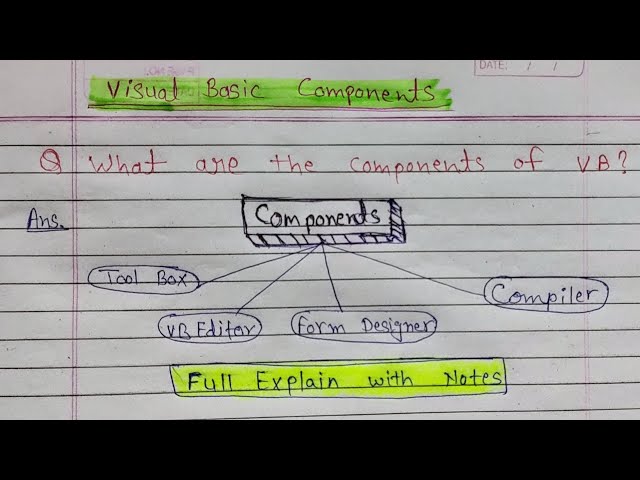 DATE: / /
Visual Basic Components
Q What are the components of VB?
Ans.
Components
Tool Box
Compiler
VB Editor
Form Designer
Full Explain with Notes